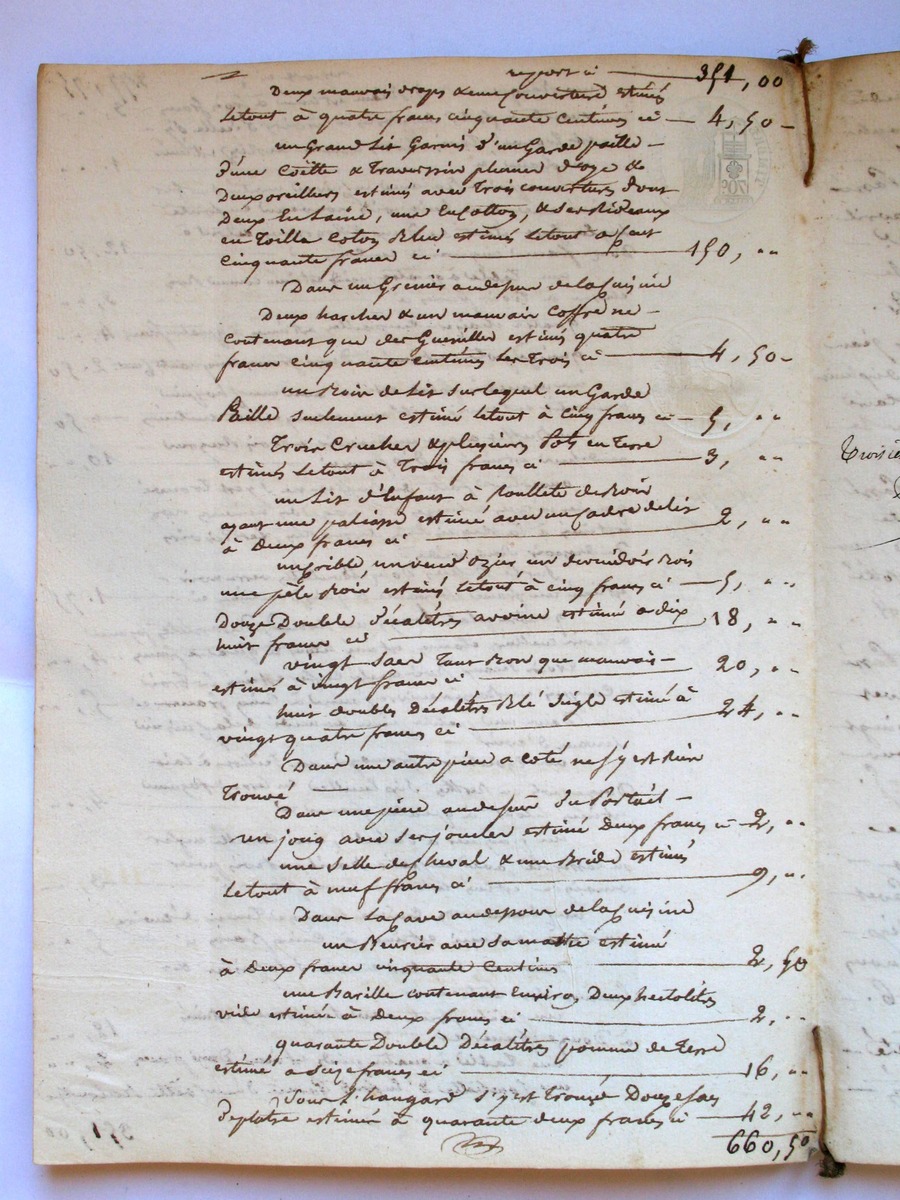 report ci 351,00
Deux mauvais draps & une Couverture estimés
Le tout à quatre francs cinquante centimes ci 4,50
un Grand Lit Garni d'un Garde paille
d'une Coëtte & Traversin plumes d'oye &
Deux oreillers estimés avec Trois couvertures dont
Deux En Laine, une En Cotton, & ses Rideaux
en Toille Coton Bleu estimés Le tout a Cent
Cinquante francs ci 150, "
Dans un Grenier au dessus de la Cuisine
Deux harches & un mauvais Coffre ne
contenant que des Guenilles estimés quatre
francs Cinquante Centimes Les Trois ci 4,50
un Bois de Lit sur lequel un Garde
Paille seulement estimé Le tout à Cinq francs ci 5, "
Trois Cruches & plusieurs Pots en Terre
estimés Le tout à Trois francs ci 3, "
un Lit d'Enfant à Roullete de Bois
ayant une paliasse estimé avec un Cadre de Lit
à Deux francs ci 2, "
un Crible, un Ozier un devidoir Bois
une pèle Bois estimés Le tout à cinq francs ci 5, "
Douze Double Décalitres avoine estimé a dix
huit francs ci 18, "
vingt Sacs Tant Bon que mauvais
estimés à vingt francs ci 20, "
huit doubles Décalitres Blé Seigle estimé à
vingt quatre francs ci 24, "
Dans une autre pièce a coté ne s'y est Rien
Trouvé
Dans une pièce au dessus du Portail
un joug avec ses jouclés estimé Deux francs ci 2, "
une Selle de Cheval & une Bride estimés
Le tout à neuf francs ci 9, "
Dans La Cave au dessous de la Cuisine
un Beurrier avec Sa estimé
à Deux francs cinquante Centimes 2,50
une Barille contenant Environ Deux hectolitres
vide estimée à Deux francs ci 2, "
quarante Double Décalitres pomme de Terre
estimé a Seize francs ci 16, "
Sous L'hangard s'y est trouvé Douze Sacs
de platre estimés à quarante deux francs ci 42, "
660,50